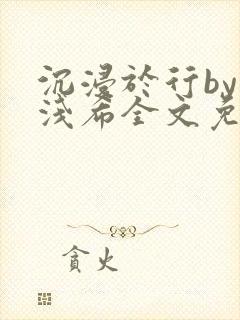 沉浸於行by
淺希全文免
貪火